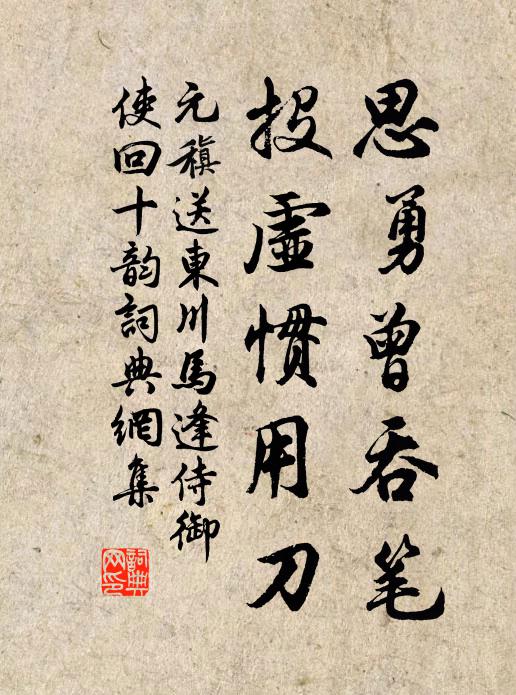 思勇曾吞笔
投虚惯用刀
元稹送東川馬逢侍御
使回十韵詞典網集
詞典网印